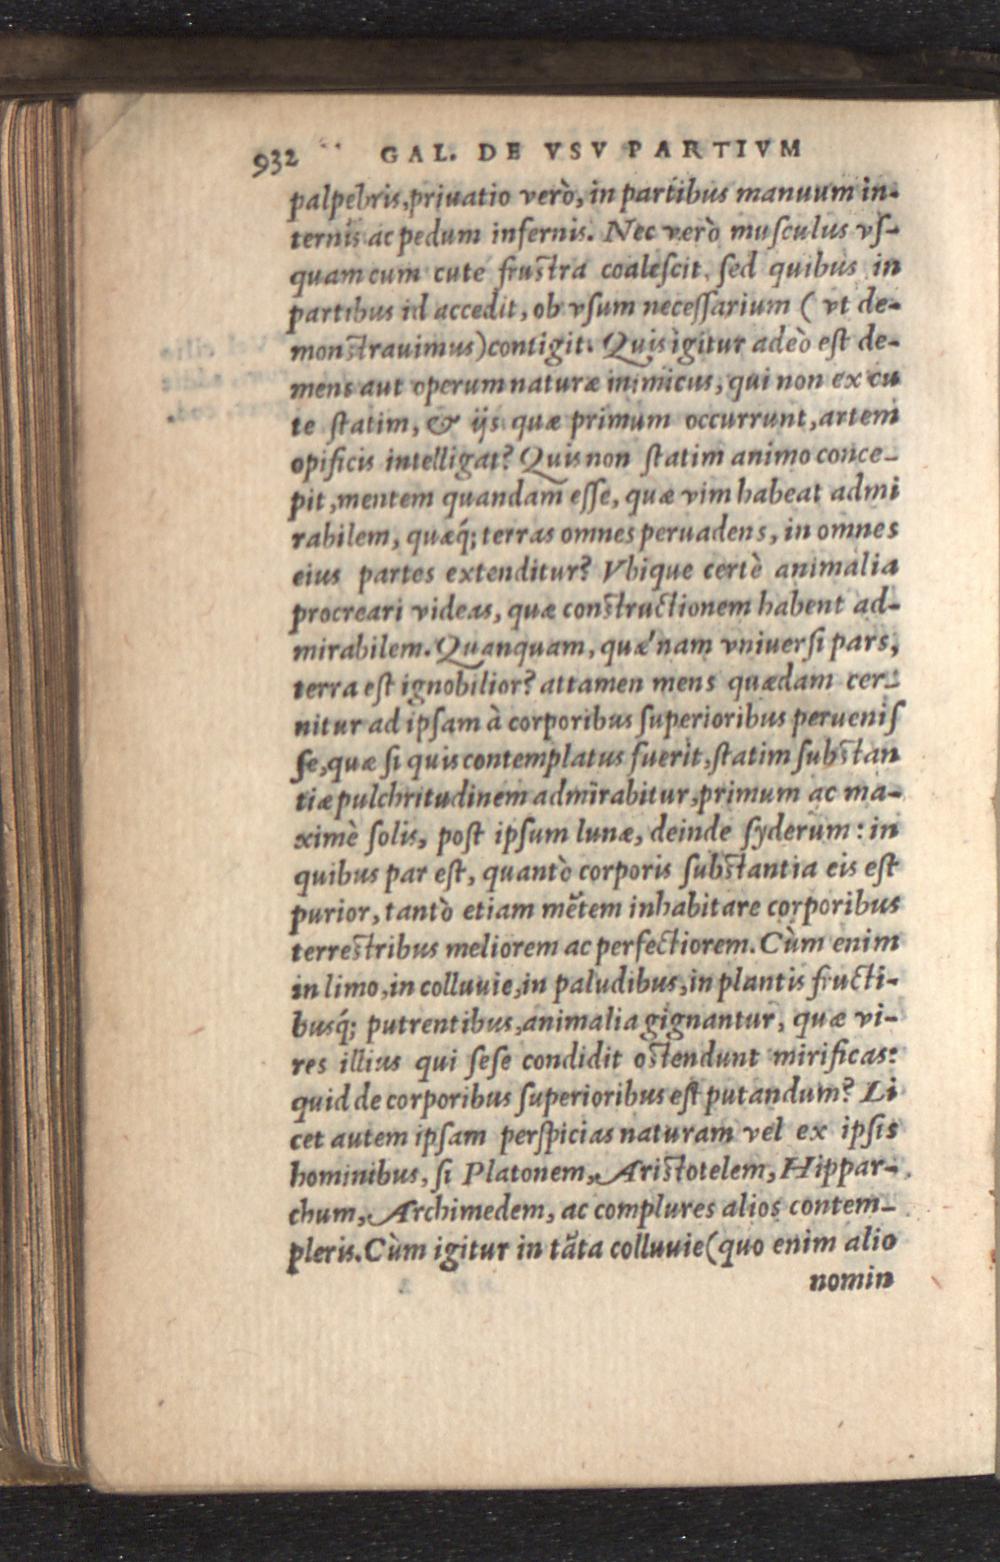 932 GAL. DE VSV PARTIVM
palpebris, priuatio verò, in partibus manuum in-
ternis ac pedum infernis. Nec verò musculus vs-
quam cum cute frustra coalescit, sed quibus in
partibus id accedit, ob vsum necessarium ( vt de-
monstrauimus) contigit. Quis igitur adeò est de-
mens aut operum naturæ inimicus, qui non ex cu
te statim, & ijs quæ primum occurrunt, artem
opificis intelligat? Quis non statim animo conce-
pit, mentem quandam esse, quæ vim habeat admi
rabilem, quæq́; terras omnes peruadens, in omnes
eius partes extenditur? Vbique certè animalia
procreari videas, quæ constructionem habent ad-
mirabilem. Quanquam, quæ'nam vniuersi pars,
terra est ignobilior? attamen mens quædam cer-
nitur ad ipsam à corporibus superioribus peruenis
se, quæ si quis contemplatus fuerit, statim substan
tiæ pulchritudinem admirabitur, primum ac ma-
ximè solis, post ipsum lunæ, deinde syderum: in
quibus par est, quantò corporis substantia eis est
purior, tantò etiam mētem inhabitare corporibus
terrestribus meliorem ac perfectiorem. Cùm enim
in limo, in colluuie, in paludibus, in plantis fructi-
busq́; putrentibus, animalia gignantur, quæ vi-
res illius qui sese condidit ostendunt mirificas:
quid de corporibus superioribus est putandum? Li
cet autem ipsam perspicias naturam vel ex ipsis
hominibus, si Platonem, Aristotelem, Hippar-
chum, Archimedem, ac complures alios contem-
pleris. Cùm igitur in tāta colluuie (quo enim alio
nomin